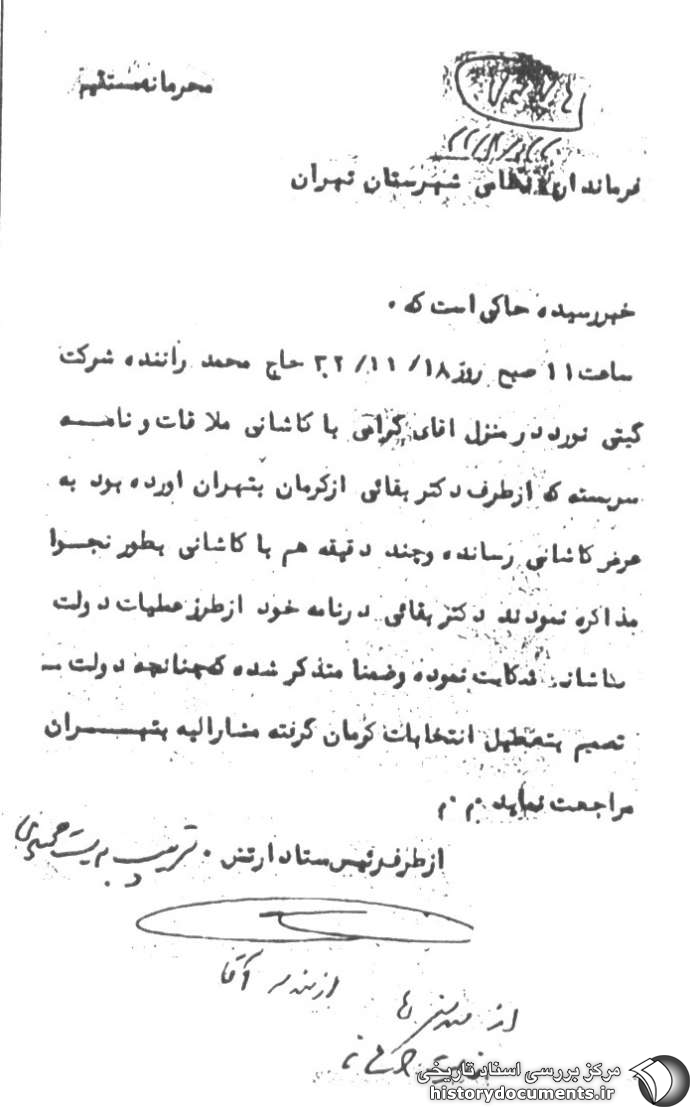 محرمانه مستقیم
فرماندار نظامی شهرستان تهران
خبر رسیده حاکی است که .
ساعت ۱۱ صبح روز ۱۸/ ۱۱/ ۳۲ حاج محمد راننده شرکت
گیتی نورد در منزل اقای گرامی با کاشانی ملاقات و نامــه
سربسته که از طرف دکتر بقائی از کرمان بتهران اورده بود به
عرض کاشانی رسانده وچند دقیقه هم با کاشانی بطور نجــوا
مذاکره نمودند دکتر بقائی درنامه خود از طرز عملیات دولت
شکایت نموده وضمنا متذکر شده که چنانچه دولت ــ
تصمیم بتعطیل انتخابات کرمان گرفته مشارالیه بتهــــران
مراجعت نماید م . م
از طرف رئیس ستاد ارتش .
از
مرکز بررسی اسناد تاریخی
historydocuments.ir